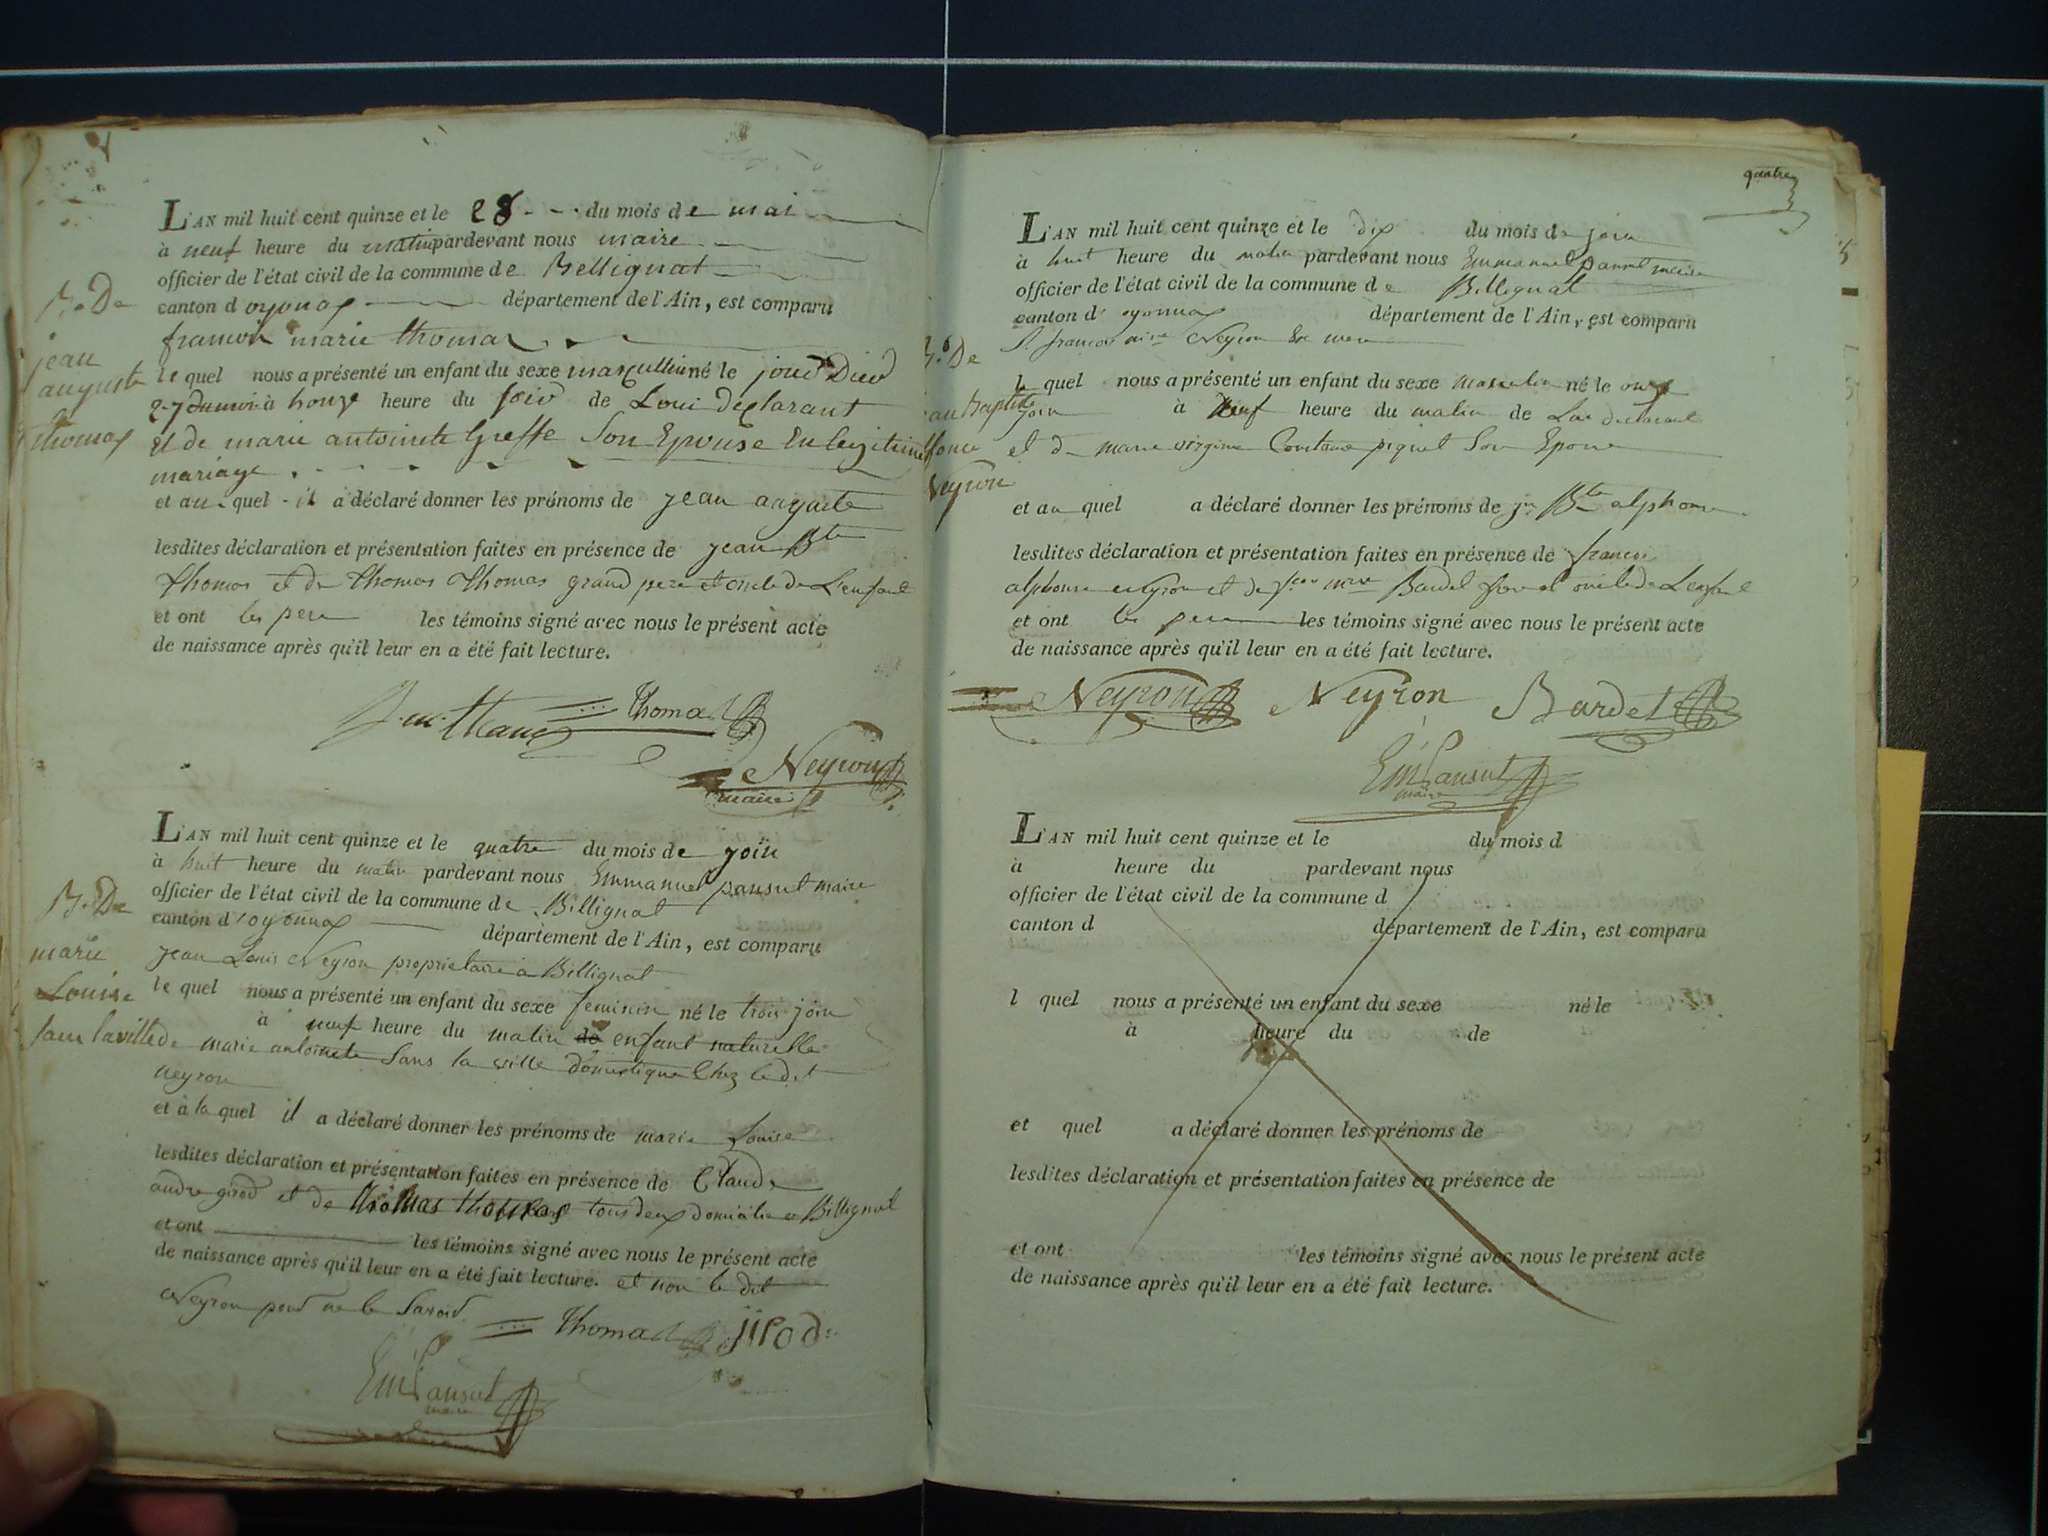 L'AN mil huit cent quinze et le 28 du mois de mai
à neuf heure du matin pardevant nous maire
officier de l'état civil de la commune de Bellignat
canton d'oyonax département de l'Ain, est comparu
françois marie thomas
le quel nous a présenté un enfant du sexe masculin né le jour Dier
27 à honze heure du soir de Loui declarant
et de marie antoinete Greffe Son Epouse En legitime
mariage
et au quel il a déclaré donner les prénoms de jean auguste
lesdites déclaration et présentation faites en présence de jean Bte
thomas et de thomas thomas grand pere et oncle de L'enfant
et ont les pere les témoins signé avec nous le présent acte
de naissance après qu'il leur en a été fait lecture.
N. De
jean
auguste
thomas
thomas
Neyron
maire
L'AN mil huit cent quinze et le quatre du mois de join
à huit heure du matin pardevant nous Emmanuel pansut maire
officier de l'état civil de la commune de Billignat
canton d'oyonnax département de l'Ain, est comparu
jean Louis Neyron proprietaire a Billignat
le quel nous a présenté un enfant du sexe feminin né le trois join
à neuf heure du matin de enfant naturelle
de marie antoinete Sans la ville domestique Chez le dit
neyron
et à la quel il a déclaré donner les prénoms de marie Louise
lesdites déclaration et présentation faites en présence de Claude
andre girod et de thomas thomas tous deux domicilie a Billignat
et ont les témoins signé avec nous le présent acte
de naissance après qu'il leur en a été fait lecture. et non le dit
Neyron pour ne le Savoir
N. De
marie
Louise
Sans laville
thomas jirod
Em Pansut
maire
quatre
L'AN mil huit cent quinze et le dix du mois de join
à huit heure du matin pardevant nous Emmanuel pansut maire
officier de l'état civil de la commune de Billignat
canton d'oyonnax département de l'Ain, est comparu
Sr françois Neyron Ex
le quel nous a présenté un enfant du sexe masculin né le
join à neuf heure du matin de Lui declarant
et de marie virginie Constance piquet Son Epouse
et au quel a déclaré donner les prénoms de jn Bte alphonse
lesdites déclaration et présentation faites en présence de françois
alphonse neyron et de Bardet oncle de Lenfant
et ont les pere les témoins signé avec nous le présent acte
de naissance après qu'il leur en a été fait lecture.
N. De
jean Baptiste
Neyron
Neyron Neyron Bardet
Em Pansut
maire
L'AN mil huit cent quinze et le du mois d
à heure du pardevant nous
officier de l'état civil de la commune d
canton d département de l'Ain, est comparu
l quel nous a présenté un enfant du sexe né le
à heure du de
et quel a déclaré donner les prénoms de
lesdites déclaration et présentation faites en présence de
et ont les témoins signé avec nous le présent acte
de naissance après qu'il leur en a été fait lecture.